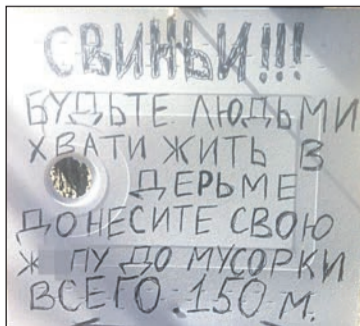 СВИНЬИ!!!
БУДЬТЕ ЛЮДЬМИ
ХВАТИ ЖИТЬ В
ДЕРЬМЕ
ДОНЕСИТЕ СВОЮ
Ж ПУ ДО МУСОРКИ
ВСЕГО 150 М.